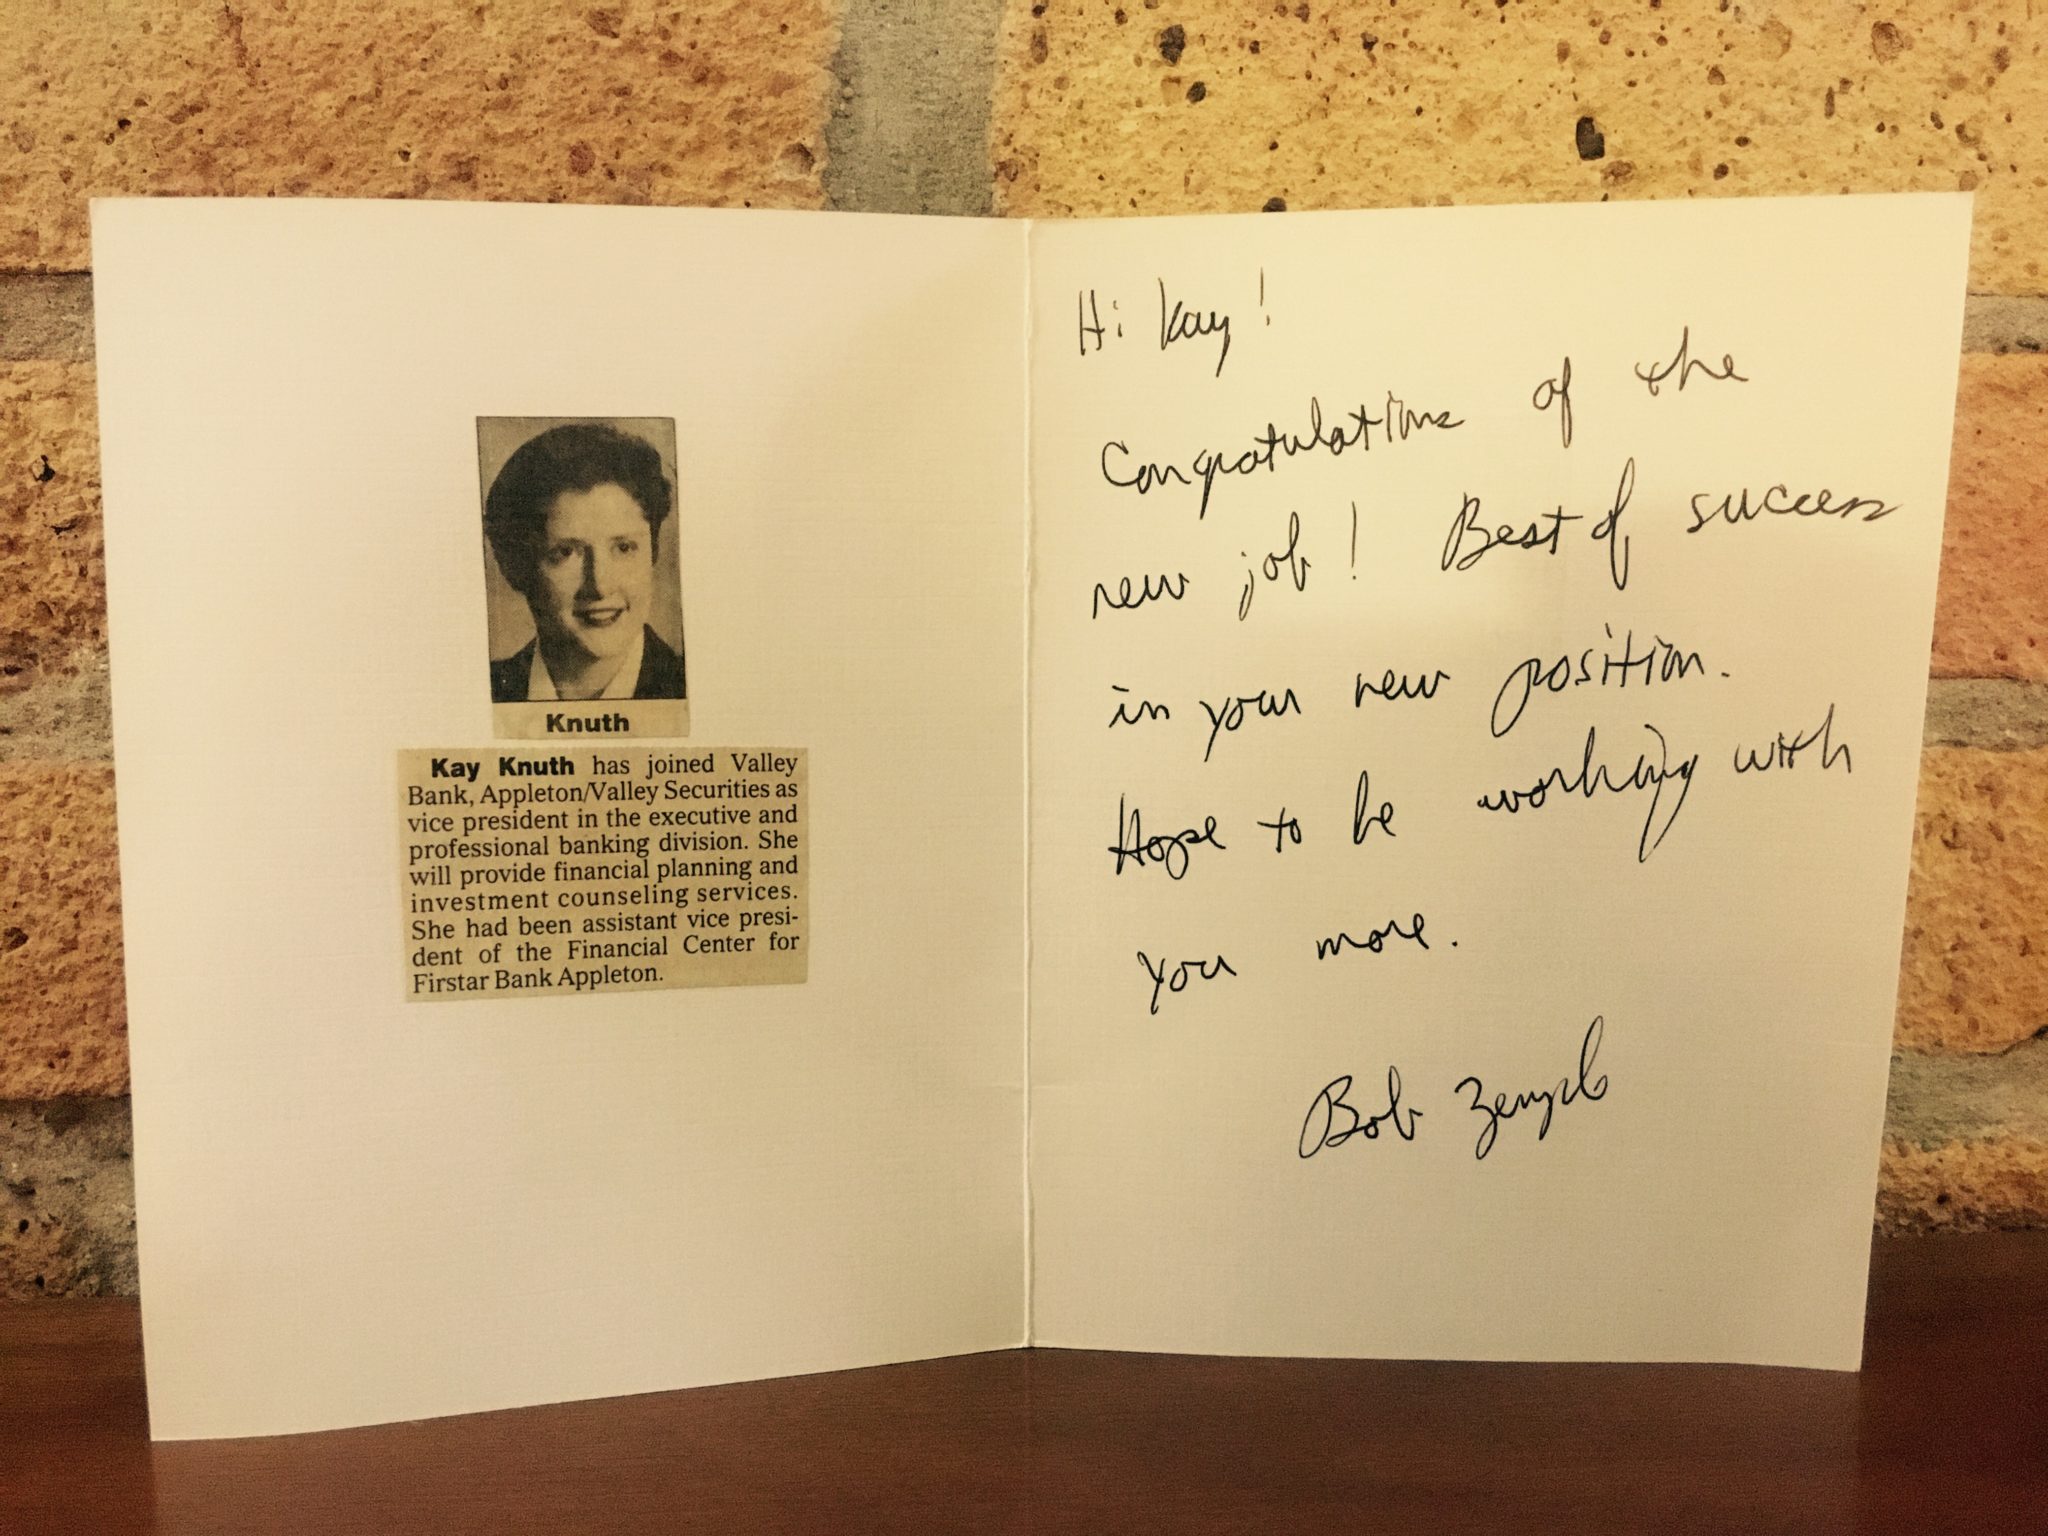 Knuth
Kay Knuth has joined Valley
Bank, Appleton/Valley Securities as
vice president in the executive and
professional banking division. She
will provide financial planning and
investment counseling services.
She had been assistant vice presi-
dent of the Financial Center for
Firstar Bank Appleton.
Hi Kay!
Congratulations of the
new job! Best of success
in your new position.
Hope to be working with
you more.
Bob